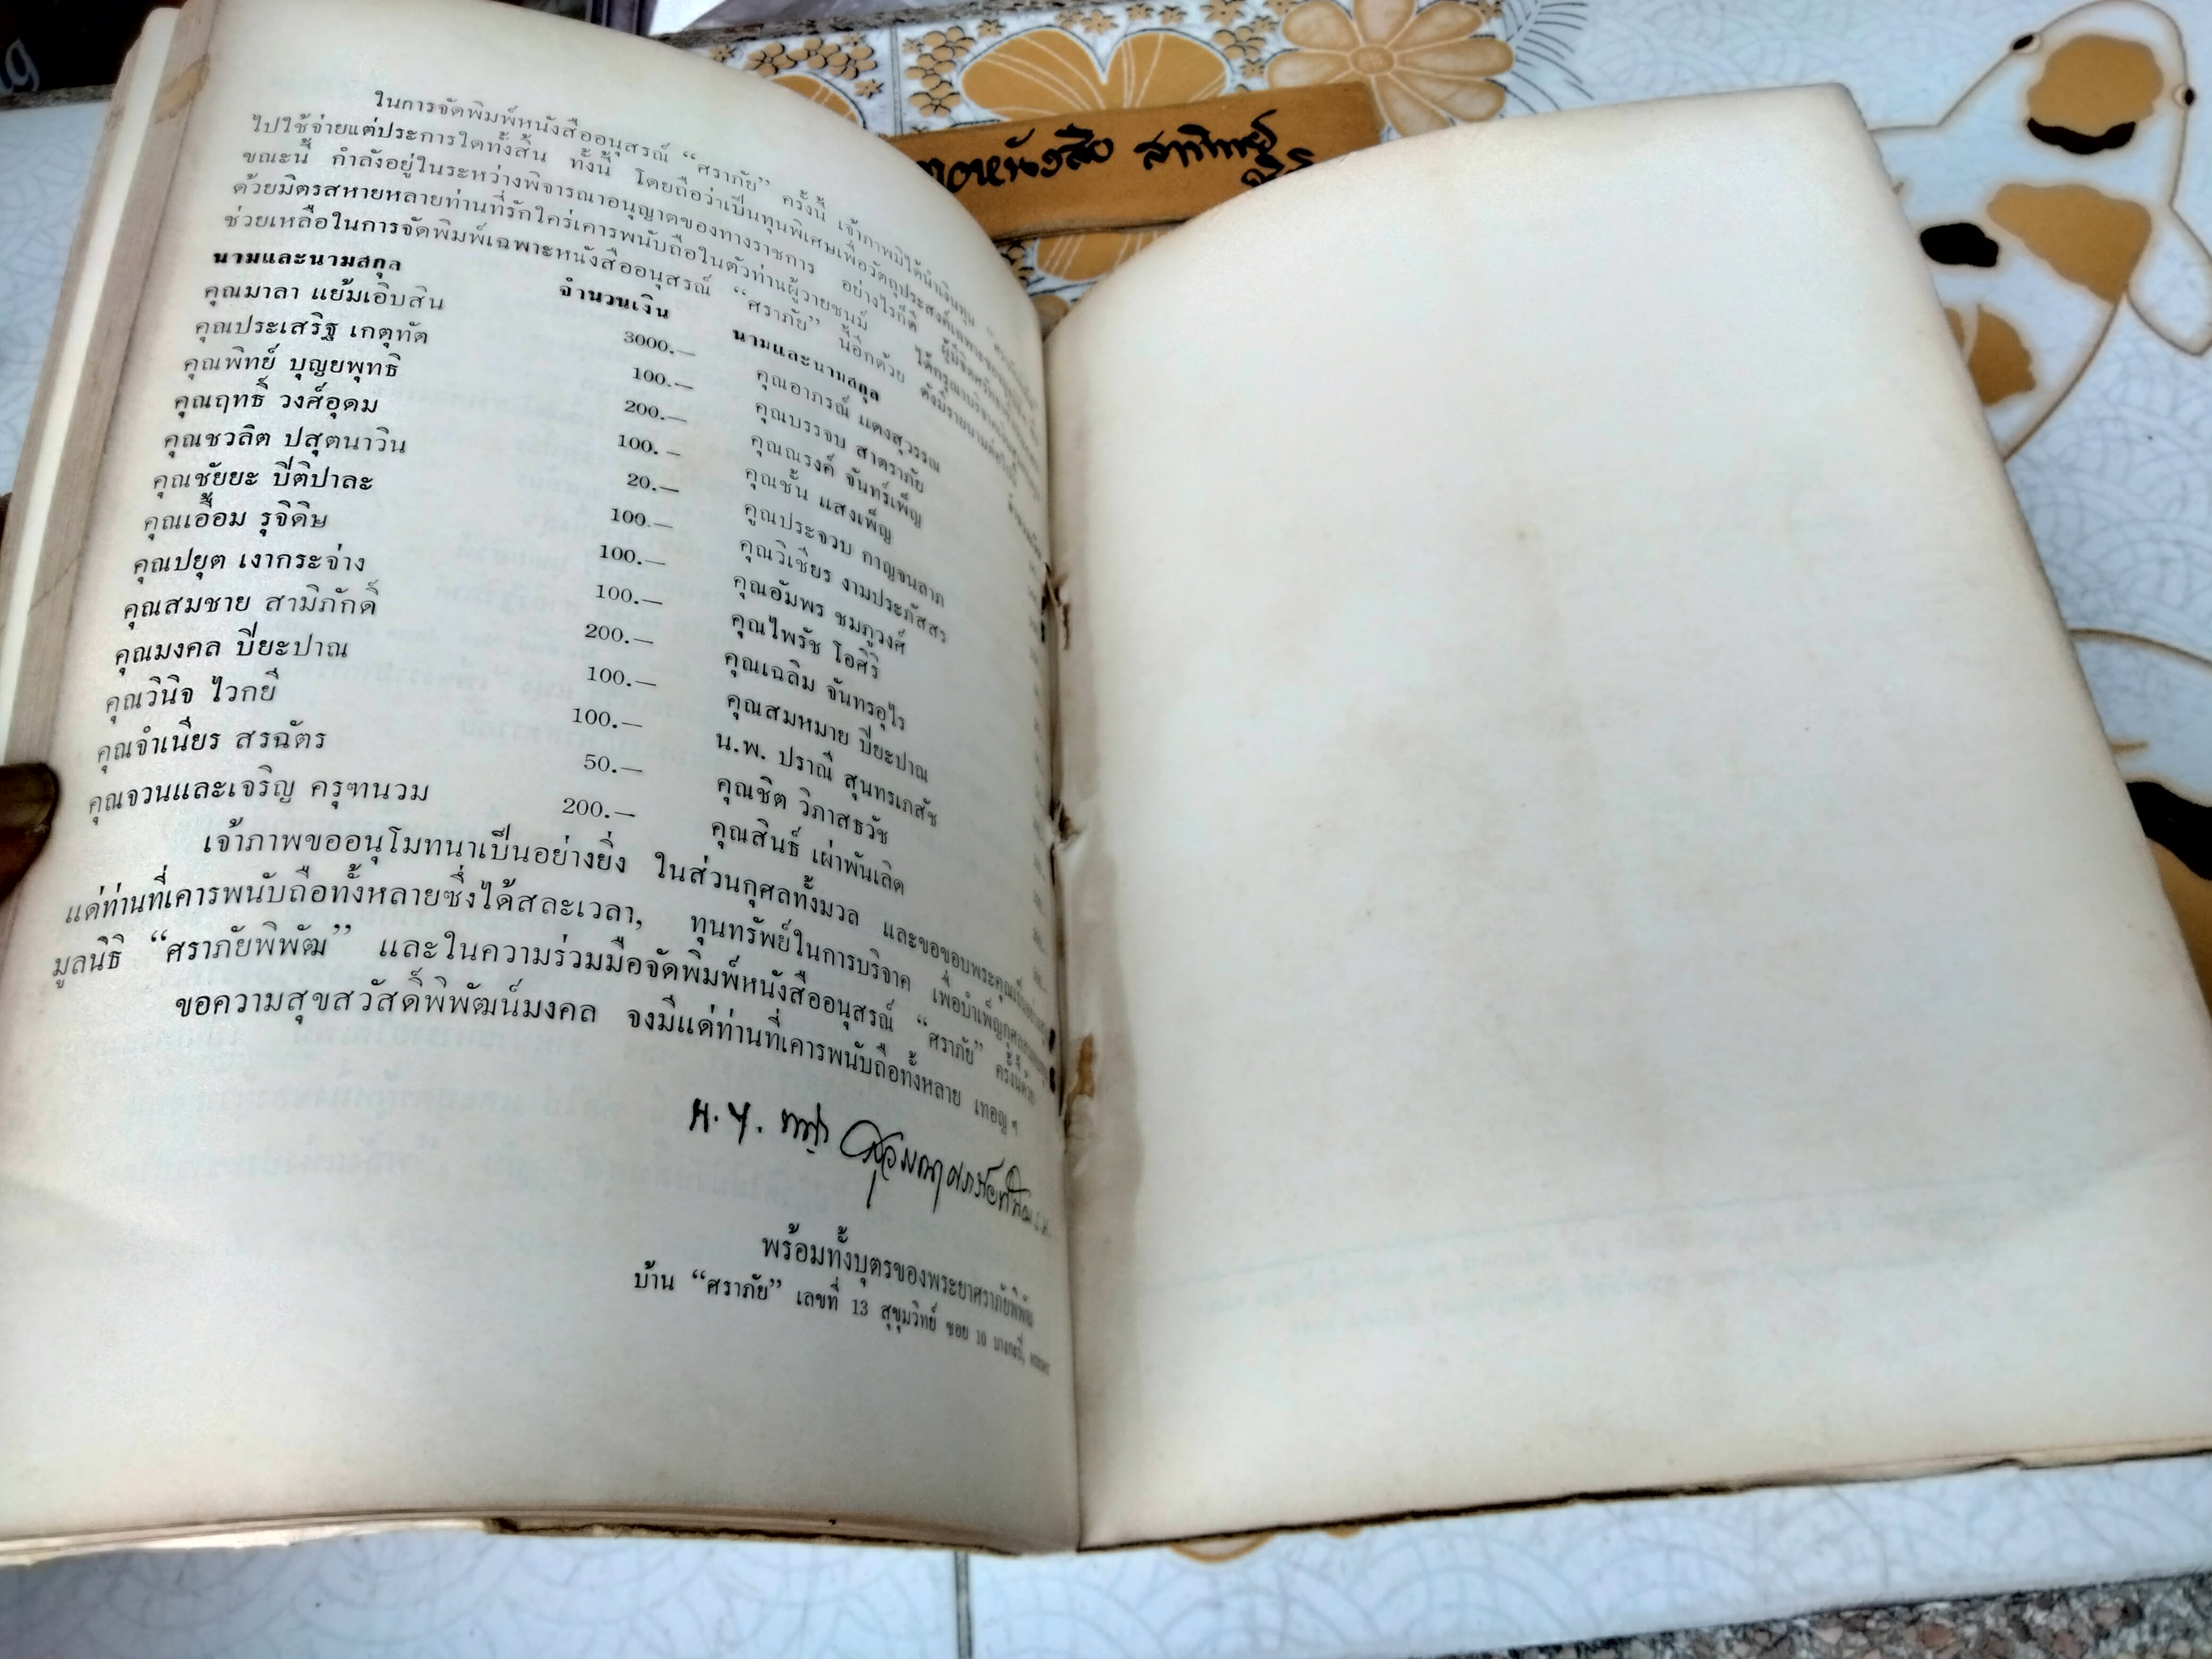 ในการจัดพิมพ์หนังสืออนุสรณ์ “ศราภัย” ครั้งนี้ เจ้าภาพมิได้นำเงินทุน
ไปใช้จ่ายแต่ประการใดทั้งสิ้น ทั้งนี้ โดยถือว่าเป็นทุนพิเศษเพื่อวัตถุประสงค์เฉพาะของมูลนิธิ
ขณะนี้ กำลังอยู่ในระหว่างพิจารณาอนุญาตของทางราชการ อย่างไรก็ดี
ด้วยมิตรสหายหลายท่านที่รักใคร่เคารพนับถือในตัวท่านผู้วายชนม์ ได้กรุณาบริจาค
ช่วยเหลือในการจัดพิมพ์เฉพาะหนังสืออนุสรณ์ “ศราภัย” นี้อีกด้วย ดังมีรายนามต่อไปนี้
นามและนามสกุล จำนวนเงิน นามและนามสกุล
คุณมาลา แย้มเอิบสิน 3000.— คุณอาภรณ์ แดงสุวรรณ
คุณประเสริฐ เกตุทัต 100.— คุณบรรจบ สาตราภัย
คุณพิทย์ บุญยพุทธิ 200.— คุณณรงค์ จันทร์เพ็ญ
คุณฤทธิ์ วงศ์อุดม 100.— คุณชั้น แสงเพ็ญ
คุณชวลิต ปสุตนาวิน 20.— คุณประจวบ กาญจนลาภ
คุณชัยยะ ปีติปาละ 100.— คุณวิเชียร งามประภัสสร
คุณเอื้อม รุจิดิษ 100.— คุณอัมพร ชมภูวงศ์
คุณปยุต เงากระจ่าง 100.— คุณไพรัช โอศิริ
คุณสมชาย สามิภักดิ์ 200.— คุณเฉลิม จันทรอุไร
คุณมงคล ปิยะปาณ 100.— คุณสมหมาย ปิยะปาณ
คุณวินิจ ไวกยี 100.— น.พ. ปราณี สุนทรเภสัช
คุณจำเนียร สรฉัตร 50.— คุณชิต วิภาสธวัช
คุณจวนและเจริญ ครุฑนวม 200.— คุณสินธ์ เผ่าพันเลิด
เจ้าภาพขออนุโมทนาเป็นอย่างยิ่ง ในส่วนกุศลทั้งมวล และขอขอบพระคุณเป็นอย่างสูง
แด่ท่านที่เคารพนับถือทั้งหลายซึ่งได้สละเวลา, ทุนทรัพย์ในการบริจาค เพื่อบำเพ็ญกุศล
มูลนิธิ “ศราภัยพิพัฒ” และในความร่วมมือจัดพิมพ์หนังสืออนุสรณ์ “ศราภัย” ครั้งนี้ด้วย
ขอความสุขสวัสดิ์พิพัฒน์มงคล จงมีแด่ท่านที่เคารพนับถือทั้งหลาย เทอญ ฯ
พร้อมทั้งบุตรของพระยาศราภัยพิพัฒ
บ้าน “ศราภัย” เลขที่ 13 สุขุมวิทย์ ซอย 10 บางกะปิ,